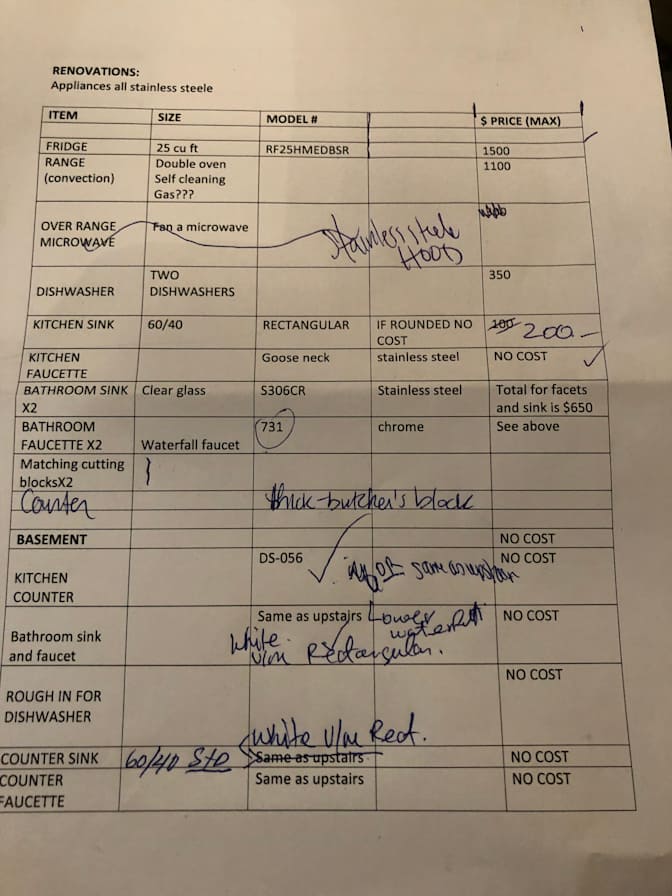 RENOVATIONS:
Appliances all stainless steele
ITEM SIZE MODEL # $ PRICE (MAX)
FRIDGE 25 cu ft RF25HMEDBSR 1500
RANGE Double oven 1100
(convection) Self cleaning
Gas???
OVER RANGE Fan a microwave
MICROWAVE
Stainless steele
HOOD
TWO 350
DISHWASHER DISHWASHERS
KITCHEN SINK 60/40 RECTANGULAR IF ROUNDED NO 100 200.-
COST
KITCHEN Goose neck stainless steel NO COST
FAUCETTE
BATHROOM SINK Clear glass S306CR Stainless steel Total for facets
X2 and sink is $650
BATHROOM 731 chrome See above
FAUCETTE X2 Waterfall faucet
Matching cutting
blocksX2
Counter thick-butcher's block
BASEMENT NO COST
DS-056 NO COST
KITCHEN same as
COUNTER
Same as upstairs Lower NO COST
Bathroom sink White
and faucet V/m Rectangular.
NO COST
ROUGH IN FOR
DISHWASHER
White V/m Rect.
COUNTER SINK 60/40 STD Same as upstairs NO COST
COUNTER Same as upstairs NO COST
FAUCETTE